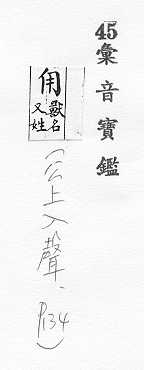 45彙音寶鑑
甪獸名
又姓
(公上入聲、P134)